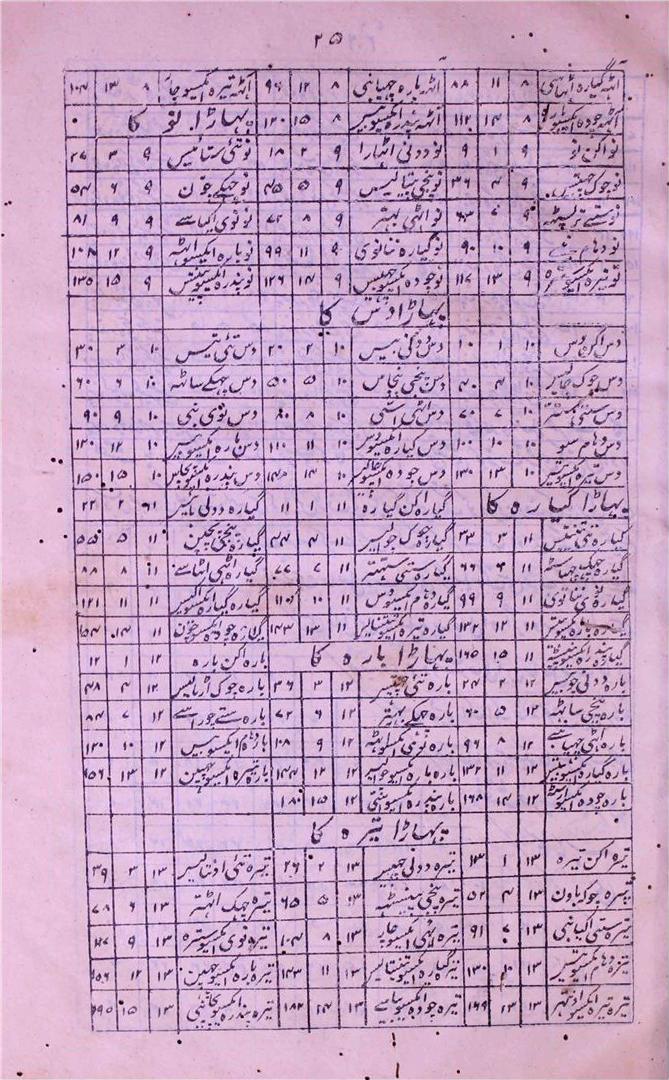 ۲۵
اٹہہ گیارہ اٹہاسی ۸ ۱۱ ۸۸ اٹہہ بارہ چہیانبی ۸ ۱۲ ۹۶ اٹہہ تیرہ ایکسو چار ۸ ۱۳ ۱۰۴
اٹہہ چودہ ۸ ۱۴ ۱۱۲ اٹہہ پندرہ ایکسو بیس ۸ ۱۵ ۱۲۰ پہاڑا نو کا ۰
نو اکن نو ۹ ۱ ۹ نو دونی اٹہارا ۹ ۲ ۱۸ نو تئی ستائیس ۹ ۳ ۲۷
نو چوک چہتیس ۹ ۴ ۳۶ نو پنجی پنتالیس ۹ ۵ ۴۵ نو چہکے چون ۹ ۶ ۵۴
نو ستے ترسیٹہہ ۹ ۷ ۶۳ نو اٹہی بہتر ۹ ۸ ۷۲ نو نوی اکیاسے ۹ ۹ ۸۱
نو دہام نبے ۹ ۱۰ ۹۰ نو گیارہ ننانوی ۹ ۱۱ ۹۹ نو بارہ ایکسو اٹہہ ۹ ۱۲ ۱۰۸
نو تیرہ ۹ ۱۳ ۱۱۷ نو چودہ ایکسو چہبیس ۹ ۱۴ ۱۲۶ نو پندرہ ایکسو پینتیس ۹ ۱۵ ۱۳۵
پہاڑا دس کا
دس اکن دس ۱۰ ۱ ۱۰ دس دونی بیس ۱۰ ۲ ۲۰ دس تئی تیس ۱۰ ۳ ۳۰
دس چوک چالیس ۱۰ ۴ ۴۰ دس پنجی پچاس ۱۰ ۵ ۵۰ دس چہکے ساٹہہ ۱۰ ۶ ۶۰
دس ستی ستر ۱۰ ۷ ۷۰ دس اٹہی اسی ۱۰ ۸ ۸۰ دس نوی نبی ۱۰ ۹ ۹۰
دس دہام سو ۱۰ ۱۰ ۱۰۰ دس گیارہ ایکسودس ۱۰ ۱۱ ۱۱۰ دس بارہ ایکسو بیس ۱۰ ۱۲ ۱۲۰
دس تیرہ ایکسو تیس ۱۰ ۱۳ ۱۳۰ دس چودہ ایکسو چالیس ۱۰ ۱۴ ۱۴۰ دس پندرہ ایکسو پچاس ۱۰ ۱۵ ۱۵۰
پہاڑا گیارہ کا گیارہ اکن گیارہ ۱۱ ۱ ۱۱ گیارہ دونی بائیس ۱۱ ۲ ۲۲
گیارہ تئی تینتیس ۱۱ ۳ ۳۳ گیارہ چوک چوالیس ۱۱ ۴ ۴۴ گیارہ پنجی پچپن ۱۱ ۵ ۵۵
گیارہ چہک چہیاسٹہہ ۱۱ ۶ ۶۶ گیارہ ستی ستہتر ۱۱ ۷ ۷۷ گیارہ اٹہی اٹہاسے ۱۱ ۸ ۸۸
گیارہ نوی ننانوی ۱۱ ۹ ۹۹ گیارہ دہام ایکسودس ۱۱ ۱۰ ۱۱۰ گیارہ گیارہ ایکسو اکیس ۱۱ ۱۱ ۱۲۱
گیارہ بارہ ایکسو بتیس ۱۱ ۱۲ ۱۳۲ گیارہ تیرہ ایکسو تنتالیس ۱۱ ۱۳ ۱۴۳ گیارہ چودہ ایکسو چون ۱۱ ۱۴ ۱۵۴
گیارہ پندرہ ایکسو پینسٹہہ ۱۱ ۱۵ ۱۶۵ پہاڑا بارہ کا بارہ اکن بارہ ۱۲ ۱ ۱۲
بارہ دونی چوبیس ۱۲ ۲ ۲۴ بارہ تئی چہتیس ۱۲ ۳ ۳۶ بارہ چوک اڑتالیس ۱۲ ۴ ۴۸
بارہ پنجی ساٹہہ ۱۲ ۵ ۶۰ بارہ چہکے بہتر ۱۲ ۶ ۷۲ بارہ ستے چوراسے ۱۲ ۷ ۸۴
بارہ اٹہی چہیانبے ۱۲ ۸ ۹۶ بارہ نوی ایکسو اٹہہ ۱۲ ۹ ۱۰۸ بارہ دہام ایکسو بیس ۱۲ ۱۰ ۱۲۰
بارہ گیارہ ایکسو بتیس ۱۲ ۱۱ ۱۳۲ بارہ بارہ ایکسو چوالیس ۱۲ ۱۲ ۱۴۴ بارہ تیرہ ایکسو چہپن ۱۲ ۱۳ ۱۵۶
بارہ چودہ ایکسو اڑسٹہہ ۱۲ ۱۴ ۱۶۸ بارہ پندرہ ایکسو اسی ۱۲ ۱۵ ۱۸۰
پہاڑا تیرہ کا
تیرہ اکن تیرہ ۱۳ ۱ ۱۳ تیرہ دونی چہبیس ۱۳ ۲ ۲۶ تیرہ تئی اونتالیس ۱۳ ۳ ۳۹
تیرہ چوک باون ۱۳ ۴ ۵۲ تیرہ پنجی پینسٹہہ ۱۳ ۵ ۶۵ تیرہ چہک اٹہتر ۱۳ ۶ ۷۸
تیرہ ستی اکیانبی ۱۳ ۷ ۹۱ تیرہ اٹہی ایکسو چار ۱۳ ۸ ۱۰۴ تیرہ نوی ایکسو سترہ ۱۳ ۹ ۱۱۷
تیرہ دہام ایکسو تیس ۱۳ ۱۰ ۱۳۰ تیرہ گیارہ ایکسو تنتالیس ۱۳ ۱۱ ۱۴۳ تیرہ بارہ ایکسو چہپن ۱۳ ۱۲ ۱۵۶
تیرہ تیرہ ایکسو اونہتر ۱۳ ۱۳ ۱۶۹ تیرہ چودہ ایکسو بیاسے ۱۳ ۱۴ ۱۸۲ تیرہ پندرہ ایکسو پچانبی ۱۳ ۱۵ ۱۹۵